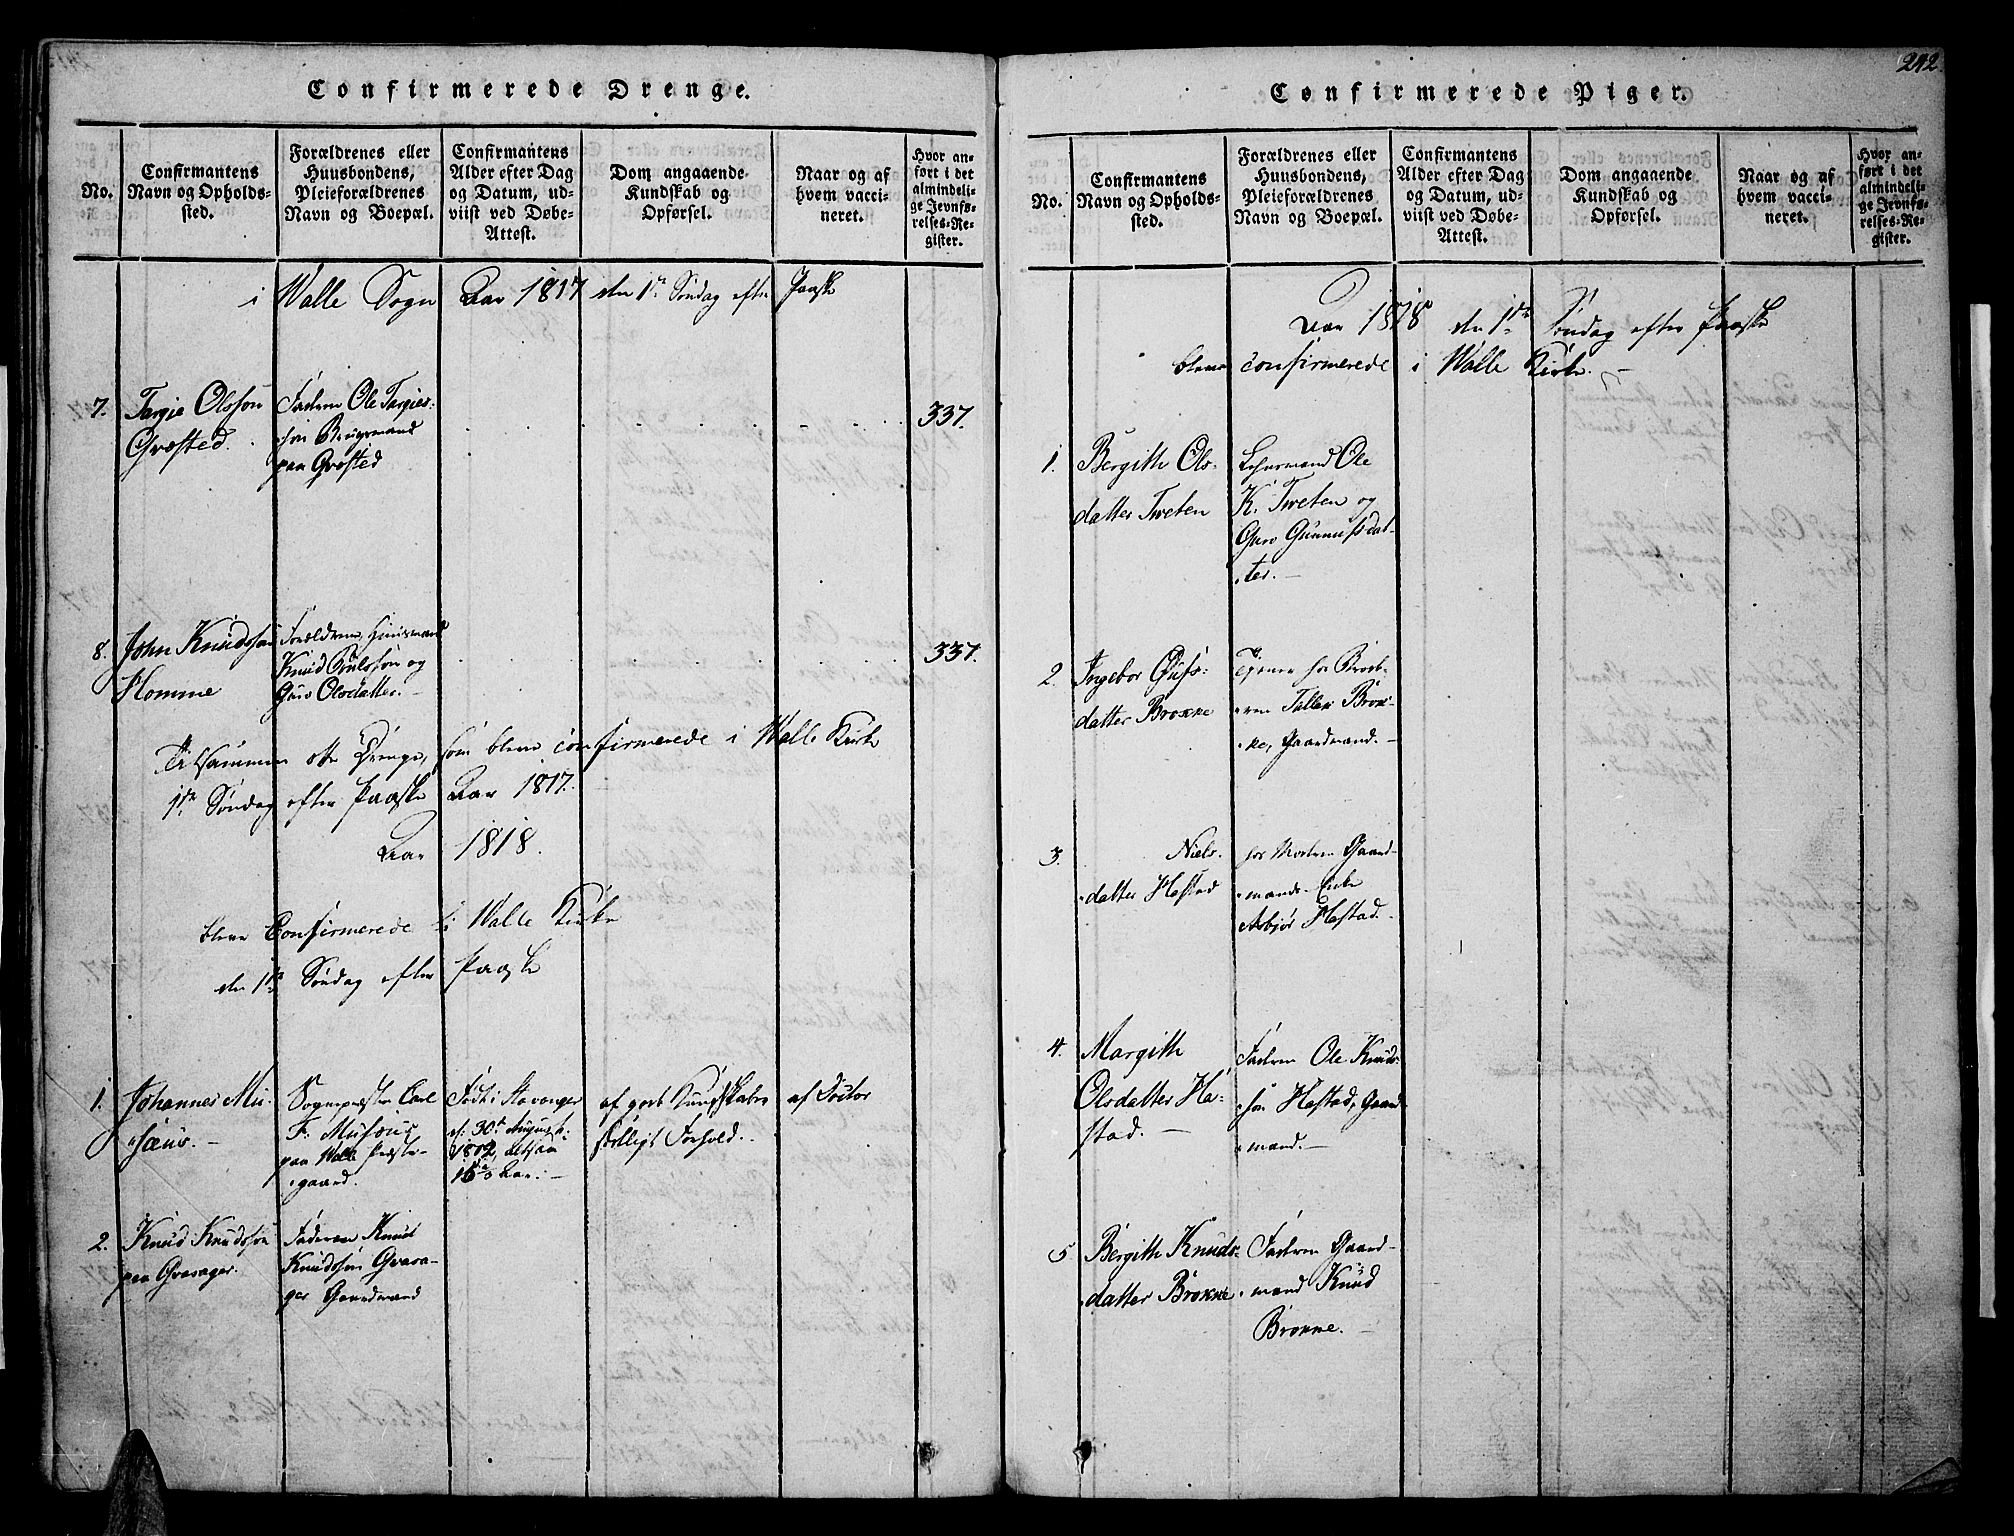 Confirmerede Drenge.
No.
Confirmantens
Navn og Opholds-
sted.
Forældrenes eller
Huusbondens,
Pleieforældrenes
Navn og Boepæl.
Confirmantens
Alder efter Dag
og Datum, ud-
viist ved Døbe-
Attest.
Dom angaaende
Kundskab og
Opførsel.
Naar og af
hvem vacci-
neret.
Hvor an-
ført i det
almindeli-
ge Jevnfø-
relses-Re-
gister.
i Walle Sogn Aar 1817 den 1ste Søndag efter Paaske
7.
Targie Olsson
Græsted.
Faderen Ole Targies-
søn Brugsmand
paa Græsted
337.
8.
John Knudssøn
Homme
Forældrene, Huusmand
Knud og
Guro Olsdatter.
337.
Tilsammen otte Drenge, som bleve confirmerede i Walle Kirke
1ste Søndag efter Paaske Aar 1817.
Aar 1818.
bleve Confirmerede i Walle Kirke
den 1ste Søndag efter Paaske
1.
Johannes Mu-
sæus.
Sognepræsten Carl
F. Musæus
paa Walle Præste-
gaard.
Født i Stavanger
d. 30te August
1802, altsaa
15 Aar.
af god Kundskab
skilligt Forhold.
af Doctor
2.
Knud Knudssøn
paa Qvasager.
Faderen Knud
Knudssøn Qvasa-
ger Gaardmand
242.
Confirmerede Piger.
No.
Confirmantens
Navn og Opholds-
sted.
Forældrenes eller
Huusbondens,
Pleieforældrenes
Navn og Boepæl.
Confirmantens
Alder efter Dag
og Datum, ud-
viist ved Døbe-
Attest.
Dom angaaende
Kundskab og
Opførsel.
Naar og af
hvem vacci-
neret.
Hvor an-
ført i det
almindeli-
ge Jevnfø-
relses-Re-
gister.
Aar 1818 den 1ste Søndag efter Paaske
bleve confirmerede i Walle Kirke.
1.
Bergith Ols-
datter Tweten
Lehnsmand Ole
K. Tweten og
Guro Gunnufsdat-
ter.
2.
Ingebor
datter Brokke
Tjener hos Brod-
eren Tallev Brok-
ke, Gaardmand.
3.
Niels-
datter Hastad
hos Moderen Gaard-
mands Enke
Asbjør Hastad.
4.
Margith
Olsdatter Ha-
stad.
Faderen Ole Knuds-
søn Hastad, Gaard-
mand.
5
Bergith Knuds-
datter Brokke
Faderen Gaard-
mand Knud
Brokke.